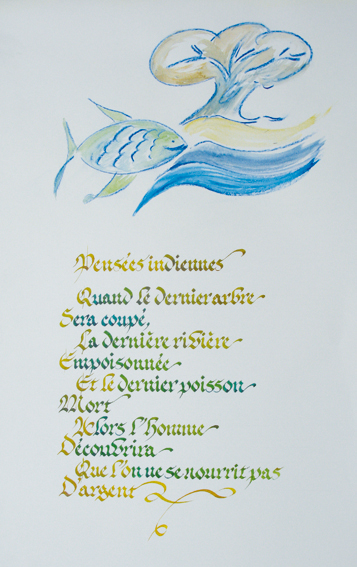 Pensées indiennes
Quand le dernier arbre
Sera coupé,
La dernière rivière
Empoisonnée
Et le dernier poisson
Mort
Alors l'Homme
Découvrira
Que l'on ne se nourrit pas
D'argent